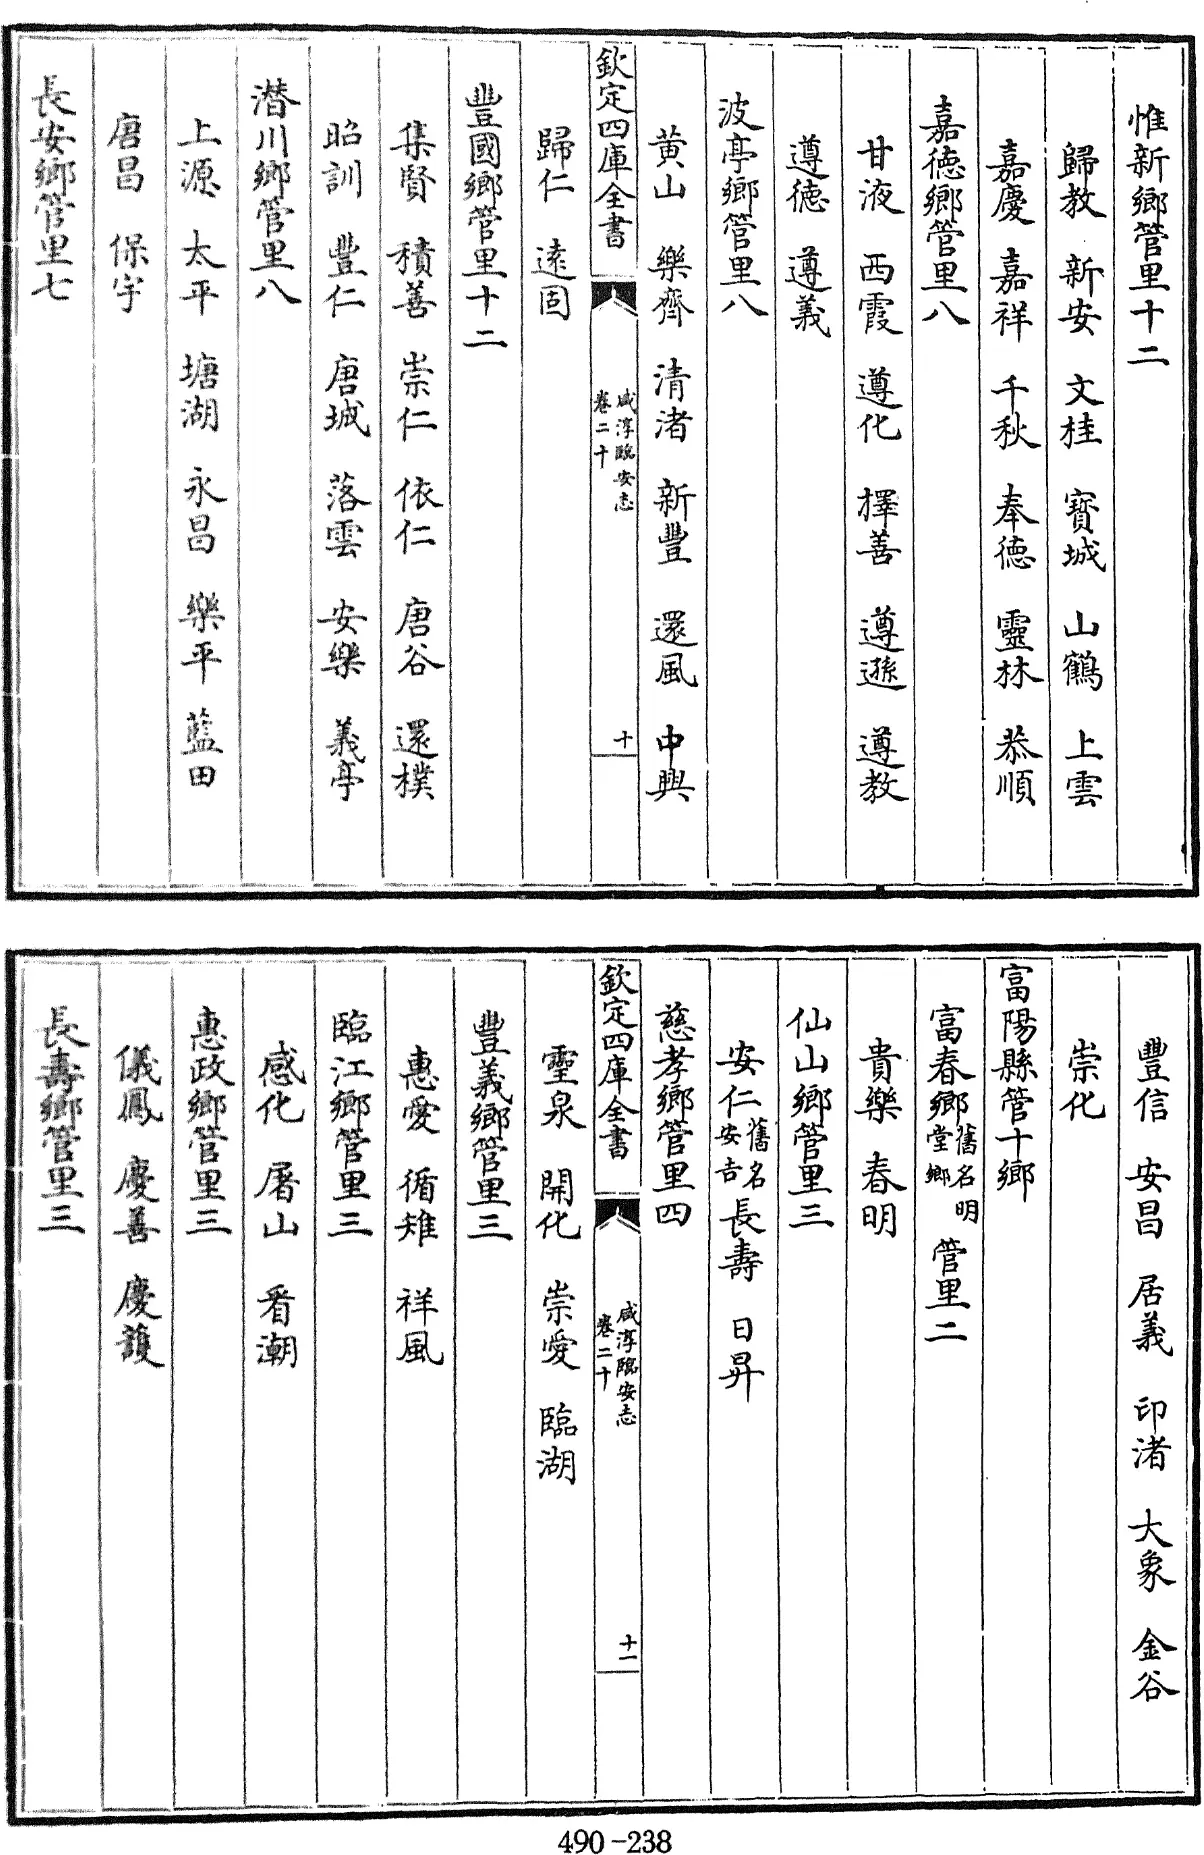 惟新鄉管里十二
歸教 新安 文桂 寳城 山鶴 上雲
嘉慶 嘉祥 千秋 奉德 靈林 恭順
嘉德鄉管里八
甘液 西霞 遵化 擇善 遵遜 遵教
遵德 遵義
波亭鄉管里八
黄山 樂齊 清渚 新豐 還風 中興
欽定四庫全書 咸淳臨安志 卷二十 十
歸仁 逺固
豐國鄉管里十二
集賢 積善 崇仁 依仁 唐谷 還樸
昭訓 豐仁 唐城 落雲 安樂 義亭
潜川鄉管里八
上源 太平 塘湖 永昌 樂平 藍田
唐昌 保宇
長安鄉管里七
豐信 安昌 居義 印渚 大象 金谷
崇化
富陽縣管十鄉
富春鄉舊名明堂鄉 管里二
貴樂 春明
仙山鄉管里三
安仁舊名安吉 長壽 日昇
慈孝鄉管里四
欽定四庫全書 咸淳臨安志 卷二十 十一
靈泉 開化 崇愛 臨湖
豐義鄉管里三
惠愛 循雉 祥風
臨江鄉管里三
感化 屠山 看潮
惠政鄉管里三
儀鳳 慶善 慶護
長壽鄉管里三
490-238